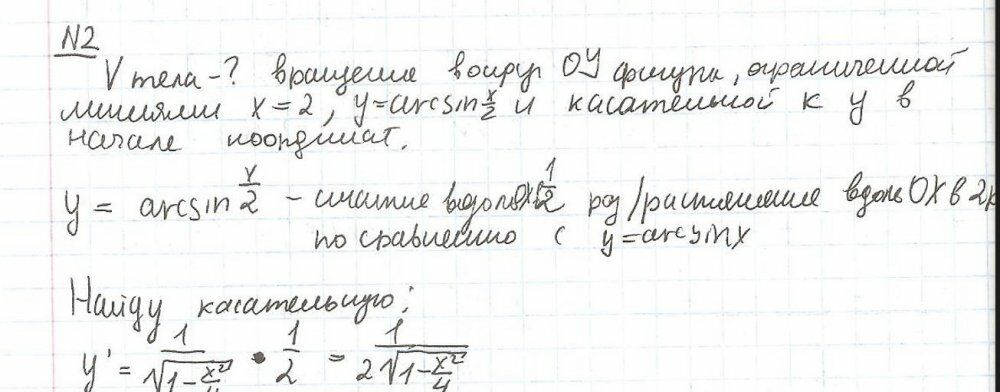 N2
V тела-? вращение вокруг ОУ фигуры, ограниченной
линиями x = 2, y=arcsin x/2 и касательной к y в
начале координат.
y = arcsin x/2 - сжатие вдоль OX в 1/2 раз/растяжение вдоль OX в 2р
по сравнению с y=arcsinx
Найду касательную:
y' = 1/√(1-x²/4) • 1/2 = 1/(2√(1-x²/4))